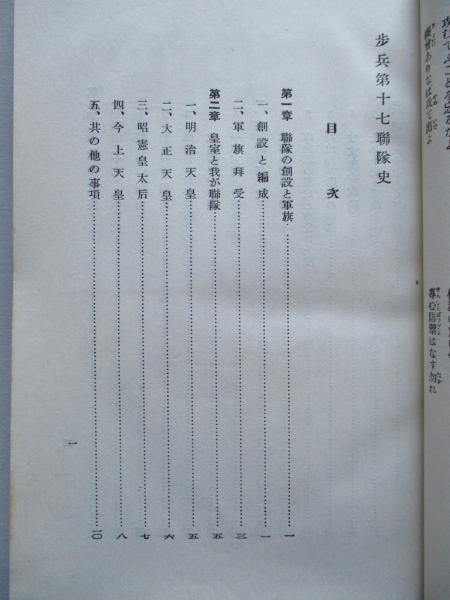 歩兵第十七聯隊史
目次
第一章 聯隊の創設と軍旗……一
一、創設と編成……一
二、軍旗拜受……三
第二章 皇室と我が聯隊……五
一、明治天皇……五
二、大正天皇……六
三、昭憲皇太后……七
四、今上天皇……八
五、其の他の事項……一〇
一